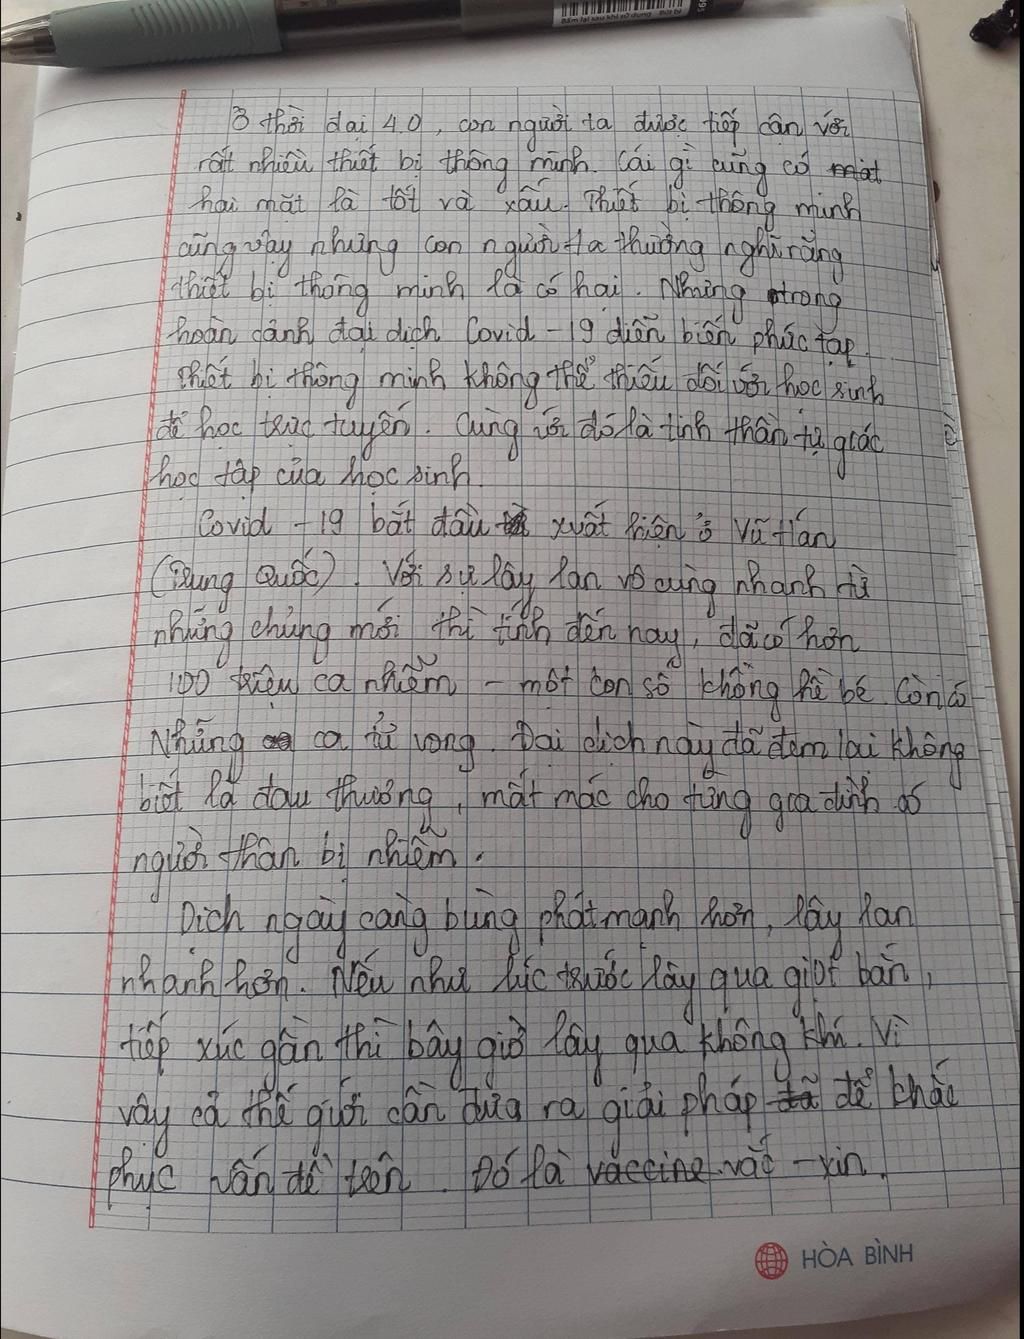 Bấm lại sau khi sử dụng Bút bi
Ở thời đại 4.0, con người ta được tiếp cận với
rất nhiều thiết bị thông minh. Cái gì cũng có một
hai mặt là tốt và xấu. Thiết bị thông minh
cũng vậy nhưng con người ta thường nghĩ rằng
thiết bị thông minh là có hại. Nhưng trong
hoàn cảnh đại dịch Covid-19 diễn biến phức tạp.
Thiết bị thông minh không thể thiếu đối với học sinh
để học trực tuyến. Cùng với đó là tinh thần tự giác
học tập của học sinh.
Covid-19 bắt đầu xuất hiện ở Vũ Hán
(Trung Quốc). Với sự lây lan vô cùng nhanh từ
những chủng mới thì tính đến nay, đã có hơn
100 triệu ca nhiễm - một con số không hề bé. Còn có
Những ca tử vong. Đại dịch này đã đem lại không
biết là đau thương, mất mác cho từng gia đình có
người thân bị nhiễm.
Dịch ngày càng bùng phát mạnh hơn, lây lan
nhanh hơn. Nếu như lúc trước lây qua giọt bắn,
tiếp xúc gần thì bây giờ lây qua không khí. Vì
vậy cả thế giới cần đưa ra giải pháp đã để khắc
phục vấn đề trên. Đó là vaccine vắc-xin.
HÒA BÌNH